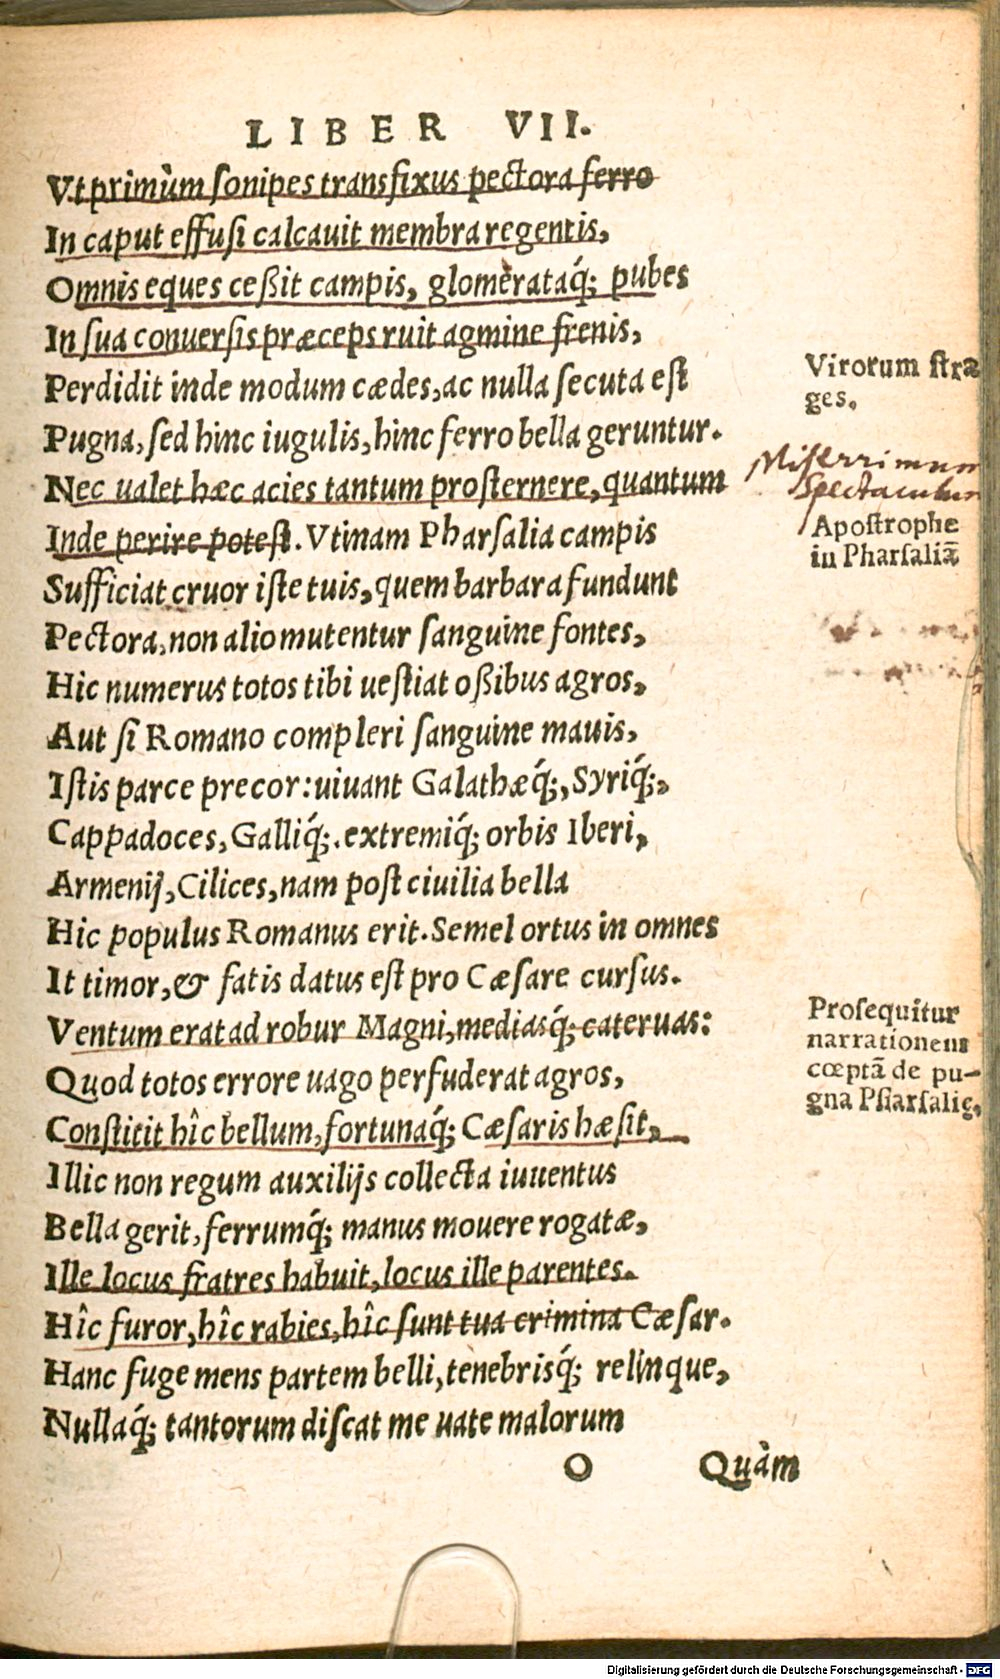 LIBER VII.
Vt primùm sonipes transfixus pectora ferro
In caput effusi calcauit membra regentis,
Omnis eques ceßit campis, glomerataq́; pubes
In sua conuersis præceps ruit agmine frenis,
Perdidit inde modum cædes, ac nulla secuta est
Virorum stra
ges.
Pugna, sed hinc iugulis, hinc ferro bella geruntur.
Nec ualet hæc acies tantum prosternere, quantum
Miserrimum
Spectaculum
Inde perire potest. Vtinam Pharsalia campis
Apostrophe
in Pharsaliā
Sufficiat cruor iste tuis, quem barbara fundunt
Pectora, non alio mutentur sanguine fontes,
Hic numerus totos tibi uestiat oßibus agros,
Aut si Romano compleri sanguine mauis,
Istis parce precor: uiuant Galathæq́;, Syriq́;,
Cappadoces, Galliq́;. extremiq́; orbis Iberi,
Armenij, Cilices, nam post ciuilia bella
Hic populus Romanus erit. Semel ortus in omnes
It timor, & fatis datus est pro Cæsare cursus.
Ventum erat ad robur Magni, mediasq́; cateruas:
Prosequitur
narrationem
cœptā de pu-
gna Pharsalię,
Quod totos errore uago perfuderat agros,
Constitit hîc bellum, fortunaq́; Cæsaris hæsit,
Illic non regum auxilijs collecta iuuentus
Bella gerit, ferrumq́; manus mouere rogatæ,
Ille locus fratres habuit, locus ille parentes.
Hîc furor, hîc rabies, hîc sunt tua crimina Cæsar.
Hanc fuge mens partem belli, tenebrisq́; relinque,
Nullaq́; tantorum discat me uate malorum
O Quàm
Digitalisierung gefördert durch die Deutsche Forschungsgemeinschaft - DFG